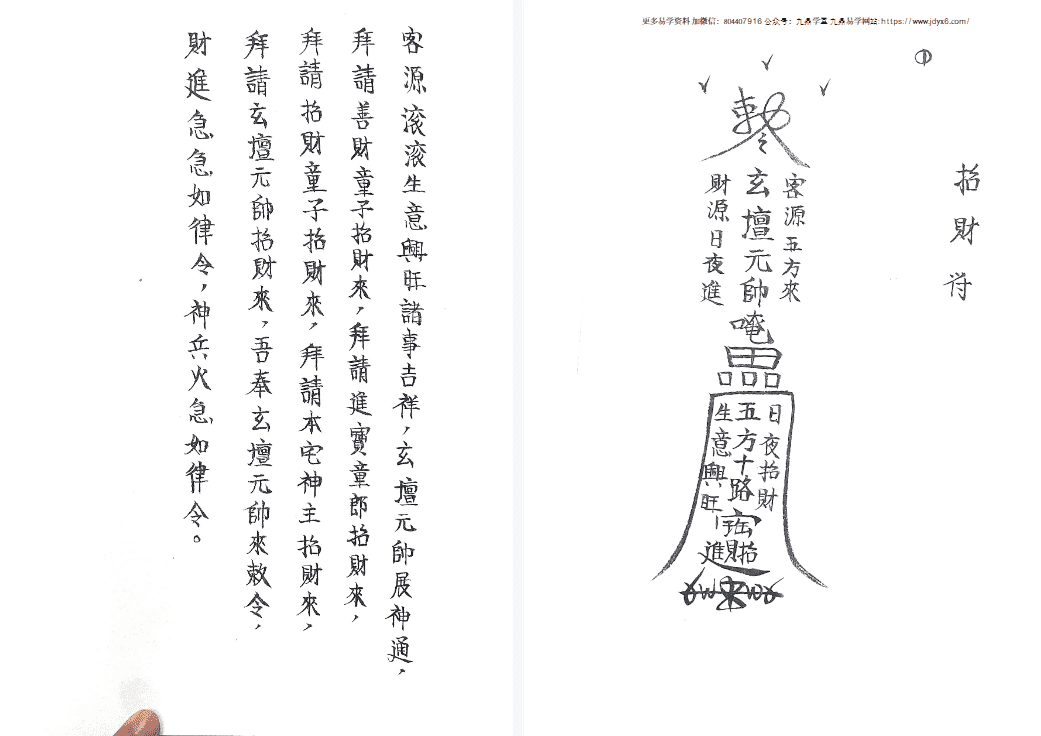 更多易学资料 加微信：804407916 公众号：九鼎学堂 九鼎易学网站: https://www.jdyx6.com/
①
招財符
敕令
客源五方來
玄壇元帥
財源日夜進
唵
日夜招財
五方十路
生意興旺
招財進寶
客源滚滚生意興旺諸事吉祥，玄壇元帥展神通，
拜請善財童子招財來，拜請進寶童郎招財來，
拜請招財童子招財來，拜請本宅神主招財來，
拜請玄壇元帥招財來，吾奉玄壇元帥來敕令，
財進急急如律令，神兵火急如律令。